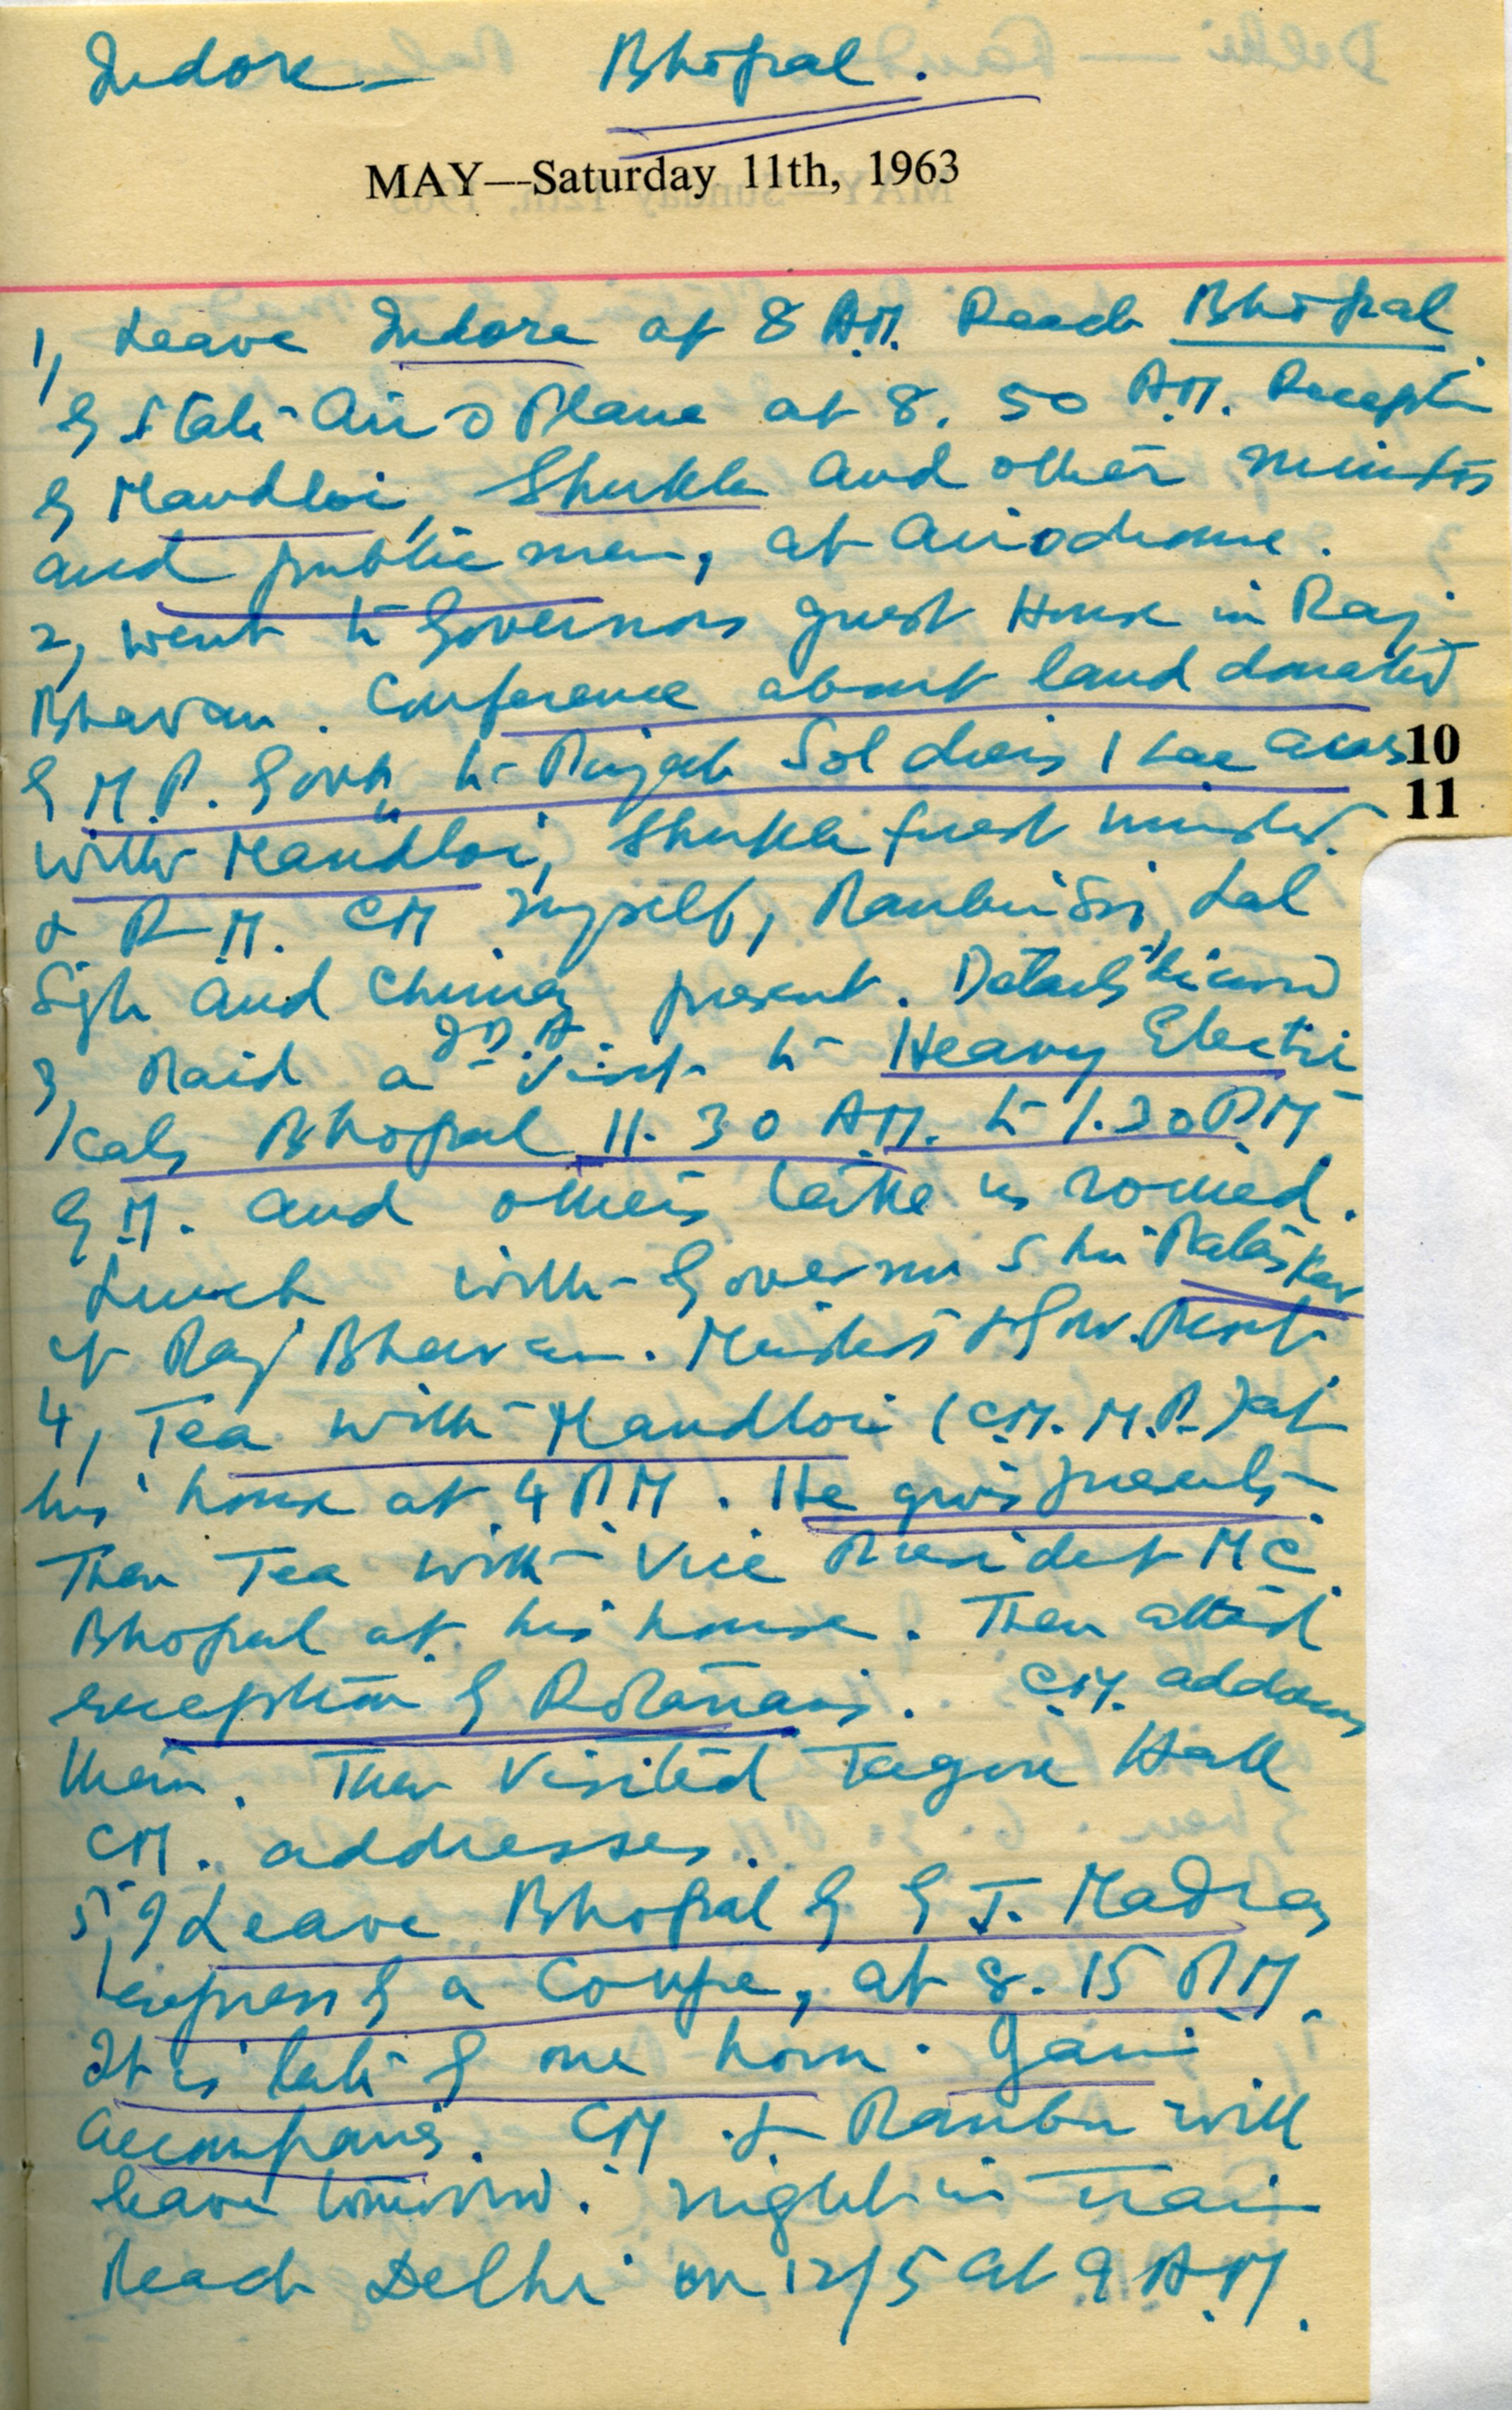 Indore - Bhopal.
MAY—Saturday 11th, 1963
1, Leave Indore at 8 A.M. Reach Bhopal
by State Air O Plane at 8.50 A.M. Reception
by Mandloi, Shukla and other ministers
and public men, at Airodrome.
2, went to Governors guest House in Raj
Bhavan. Conference about land donated
by M.P. Govt to Punjab Soldiers 1 Lac acres
10
11
with Mandloi, Shukla minister
& R.M. CM myself, Ranbir Sin, Lal
Sigh and present. Details
3, Paid a visit to Heavy Electri
/cals Bhopal 11.30 A.M. to 1.30 P.M
G.M. and others take us round.
Lunch with Governor Shri Pataskar
at Raj Bhavan. Ministers & Gov.
4, Tea with Mandloi (C.M. M.P.) at
his house at 4 P.M. He gives presents.
Then Tea with Vice President M C
Bhopal at his house. Then attend
reception by Rotarians. C.M. address
them. Then visited Tagore Hall
CM. addresses.
5, I Leave Bhopal by G T. Madras
/express by a Coupe, at 8.15 P.M.
It is late by one hour. Gani
accompanis. CM & Ranbir will
leave tomorrow. night in train
Reach Delhi on 12/5 at 9 A.M.